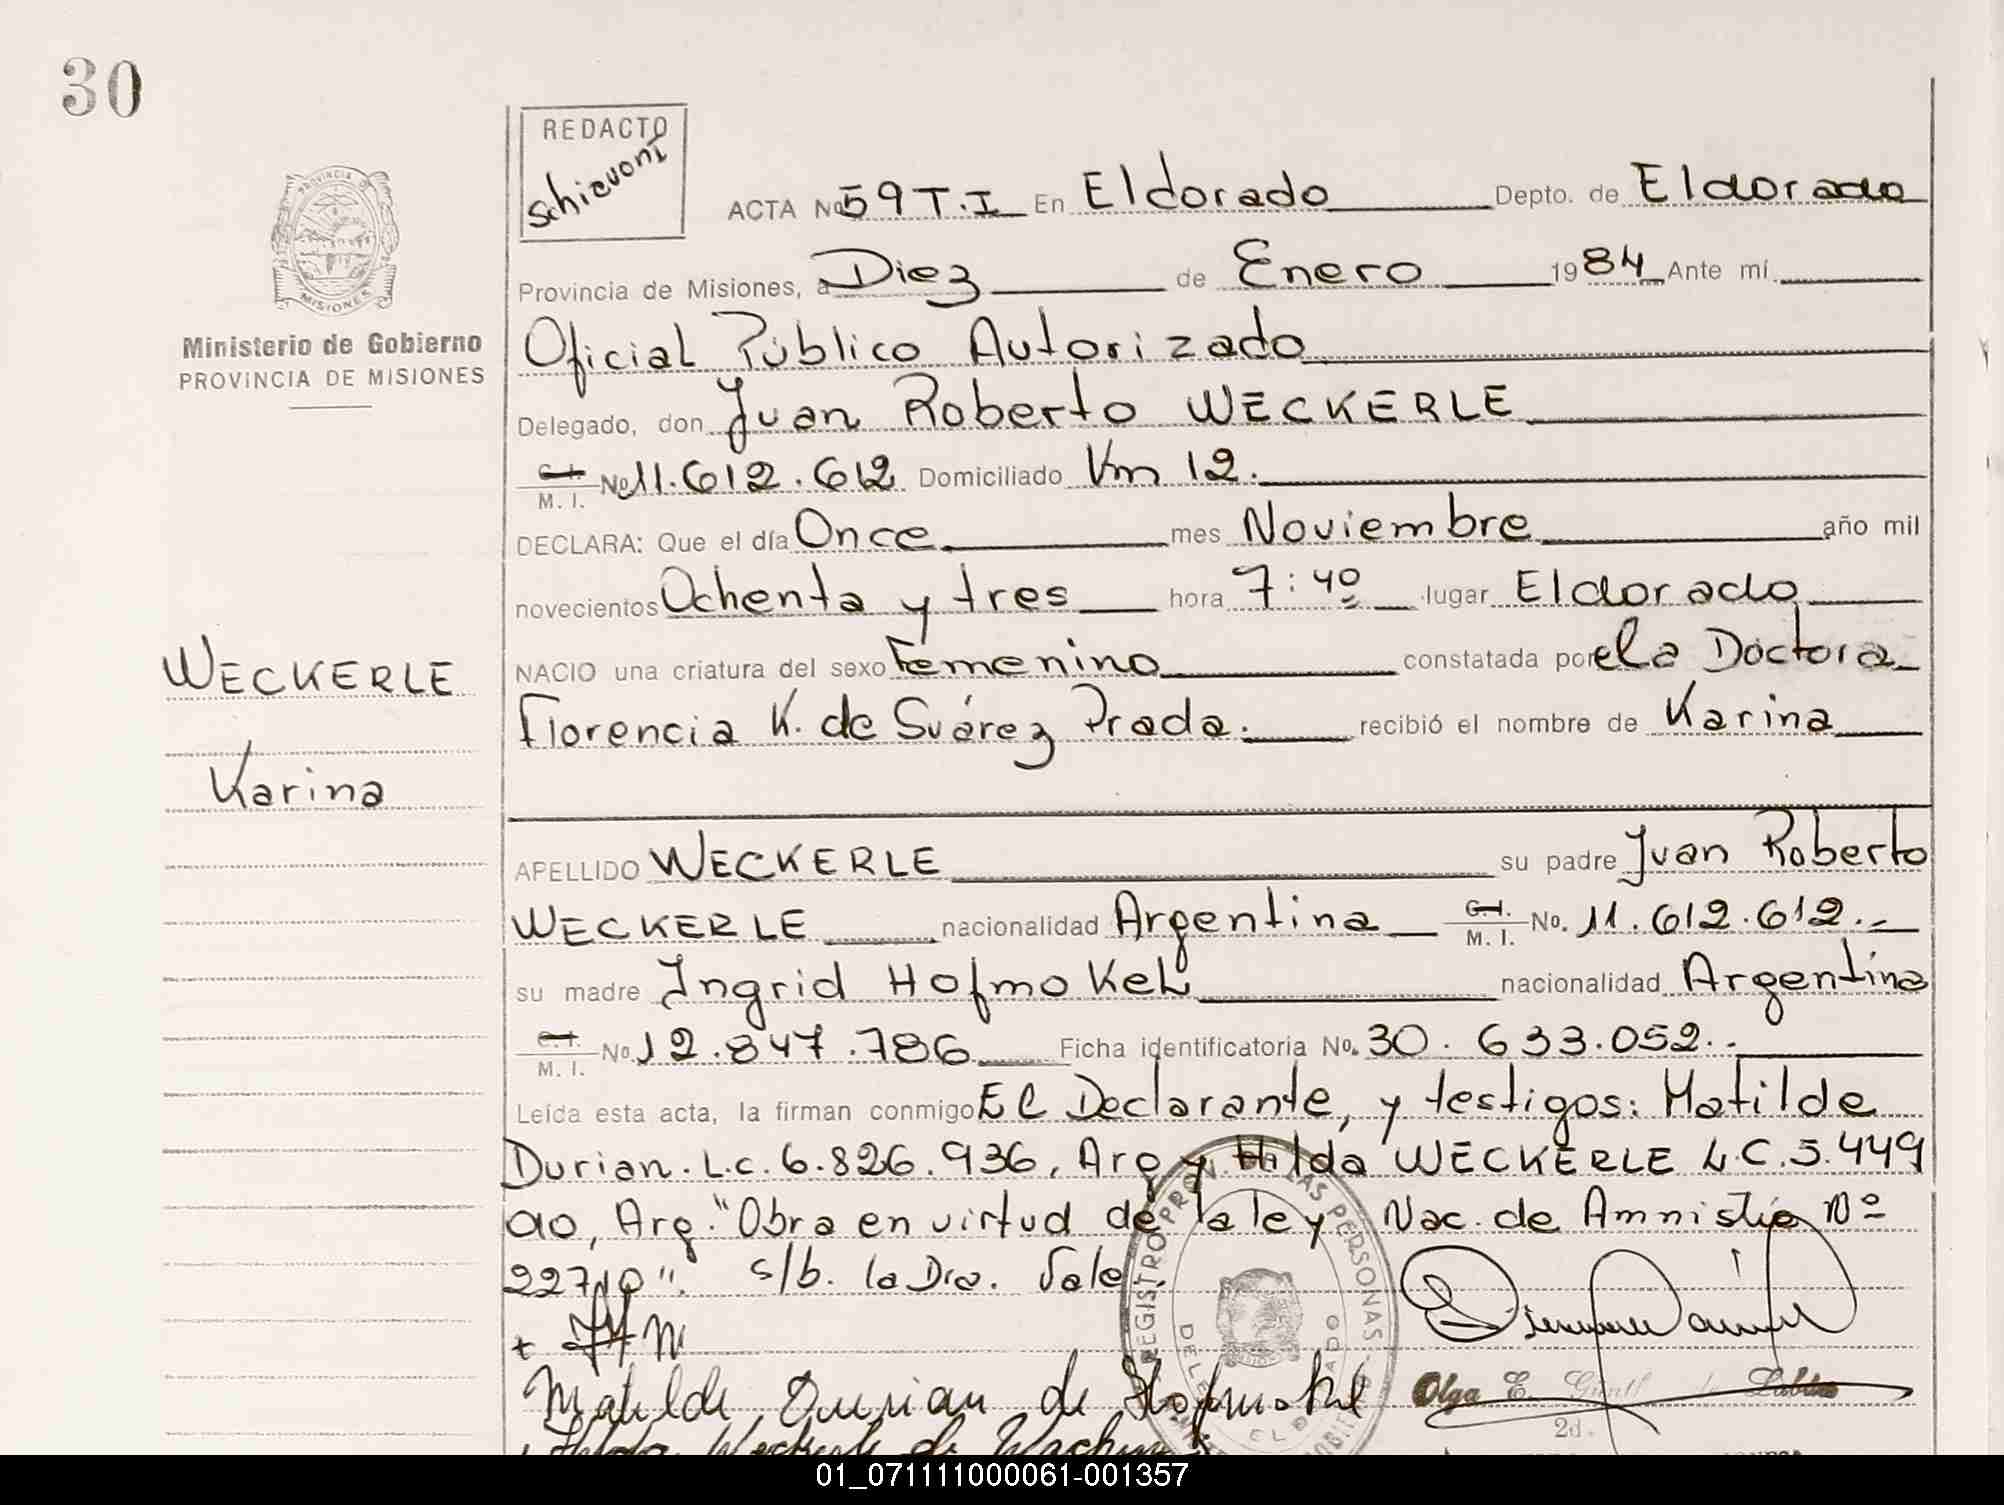 30
REDACTO
Schiavoni
PROVINCIA DE
MISIONES
Ministerio de Gobierno
PROVINCIA DE MISIONES
WECKERLE
Karina
ACTA No 59 T.I En Eldorado Depto. de Eldorado
Provincia de Misiones, a Diez de Enero 1984 Ante mí
Oficial Público Autorizado
Delegado, don Juan Roberto WECKERLE
C. I. M. I. No 11.612.612 Domiciliado Km 12.
DECLARA: Que el día Once mes Noviembre año mil
novecientos Ochenta y tres hora 7:40 lugar Eldorado
NACIO una criatura del sexo Femenino constatada por el a Doctora
Florencia K. de Suárez Prada. recibió el nombre de Karina
APELLIDO WECKERLE su padre Juan Roberto
WECKERLE nacionalidad Argentina C. I. M. I. No. 11.612.612.-
su madre Ingrid Hofmokel nacionalidad Argentina
C. I. M. I. No. 12.847.786 Ficha identificatoria No. 30.633.052.-
Leída esta acta, la firman conmigo El Declarante, y testigos: Matilde
Durian. L.C. 6.826.936, Arg y Hilda WECKERLE L.C. 5.449
Arg. "Obra en virtud de la ley Nac. de Amnistía Nº
s/b. la Dra. Vale
REGISTRO LAS PERSONAS
Matilde Durian de Hofmokel
Olga E.
2d.
Hilda Weckerle de
01_071111000061-001357